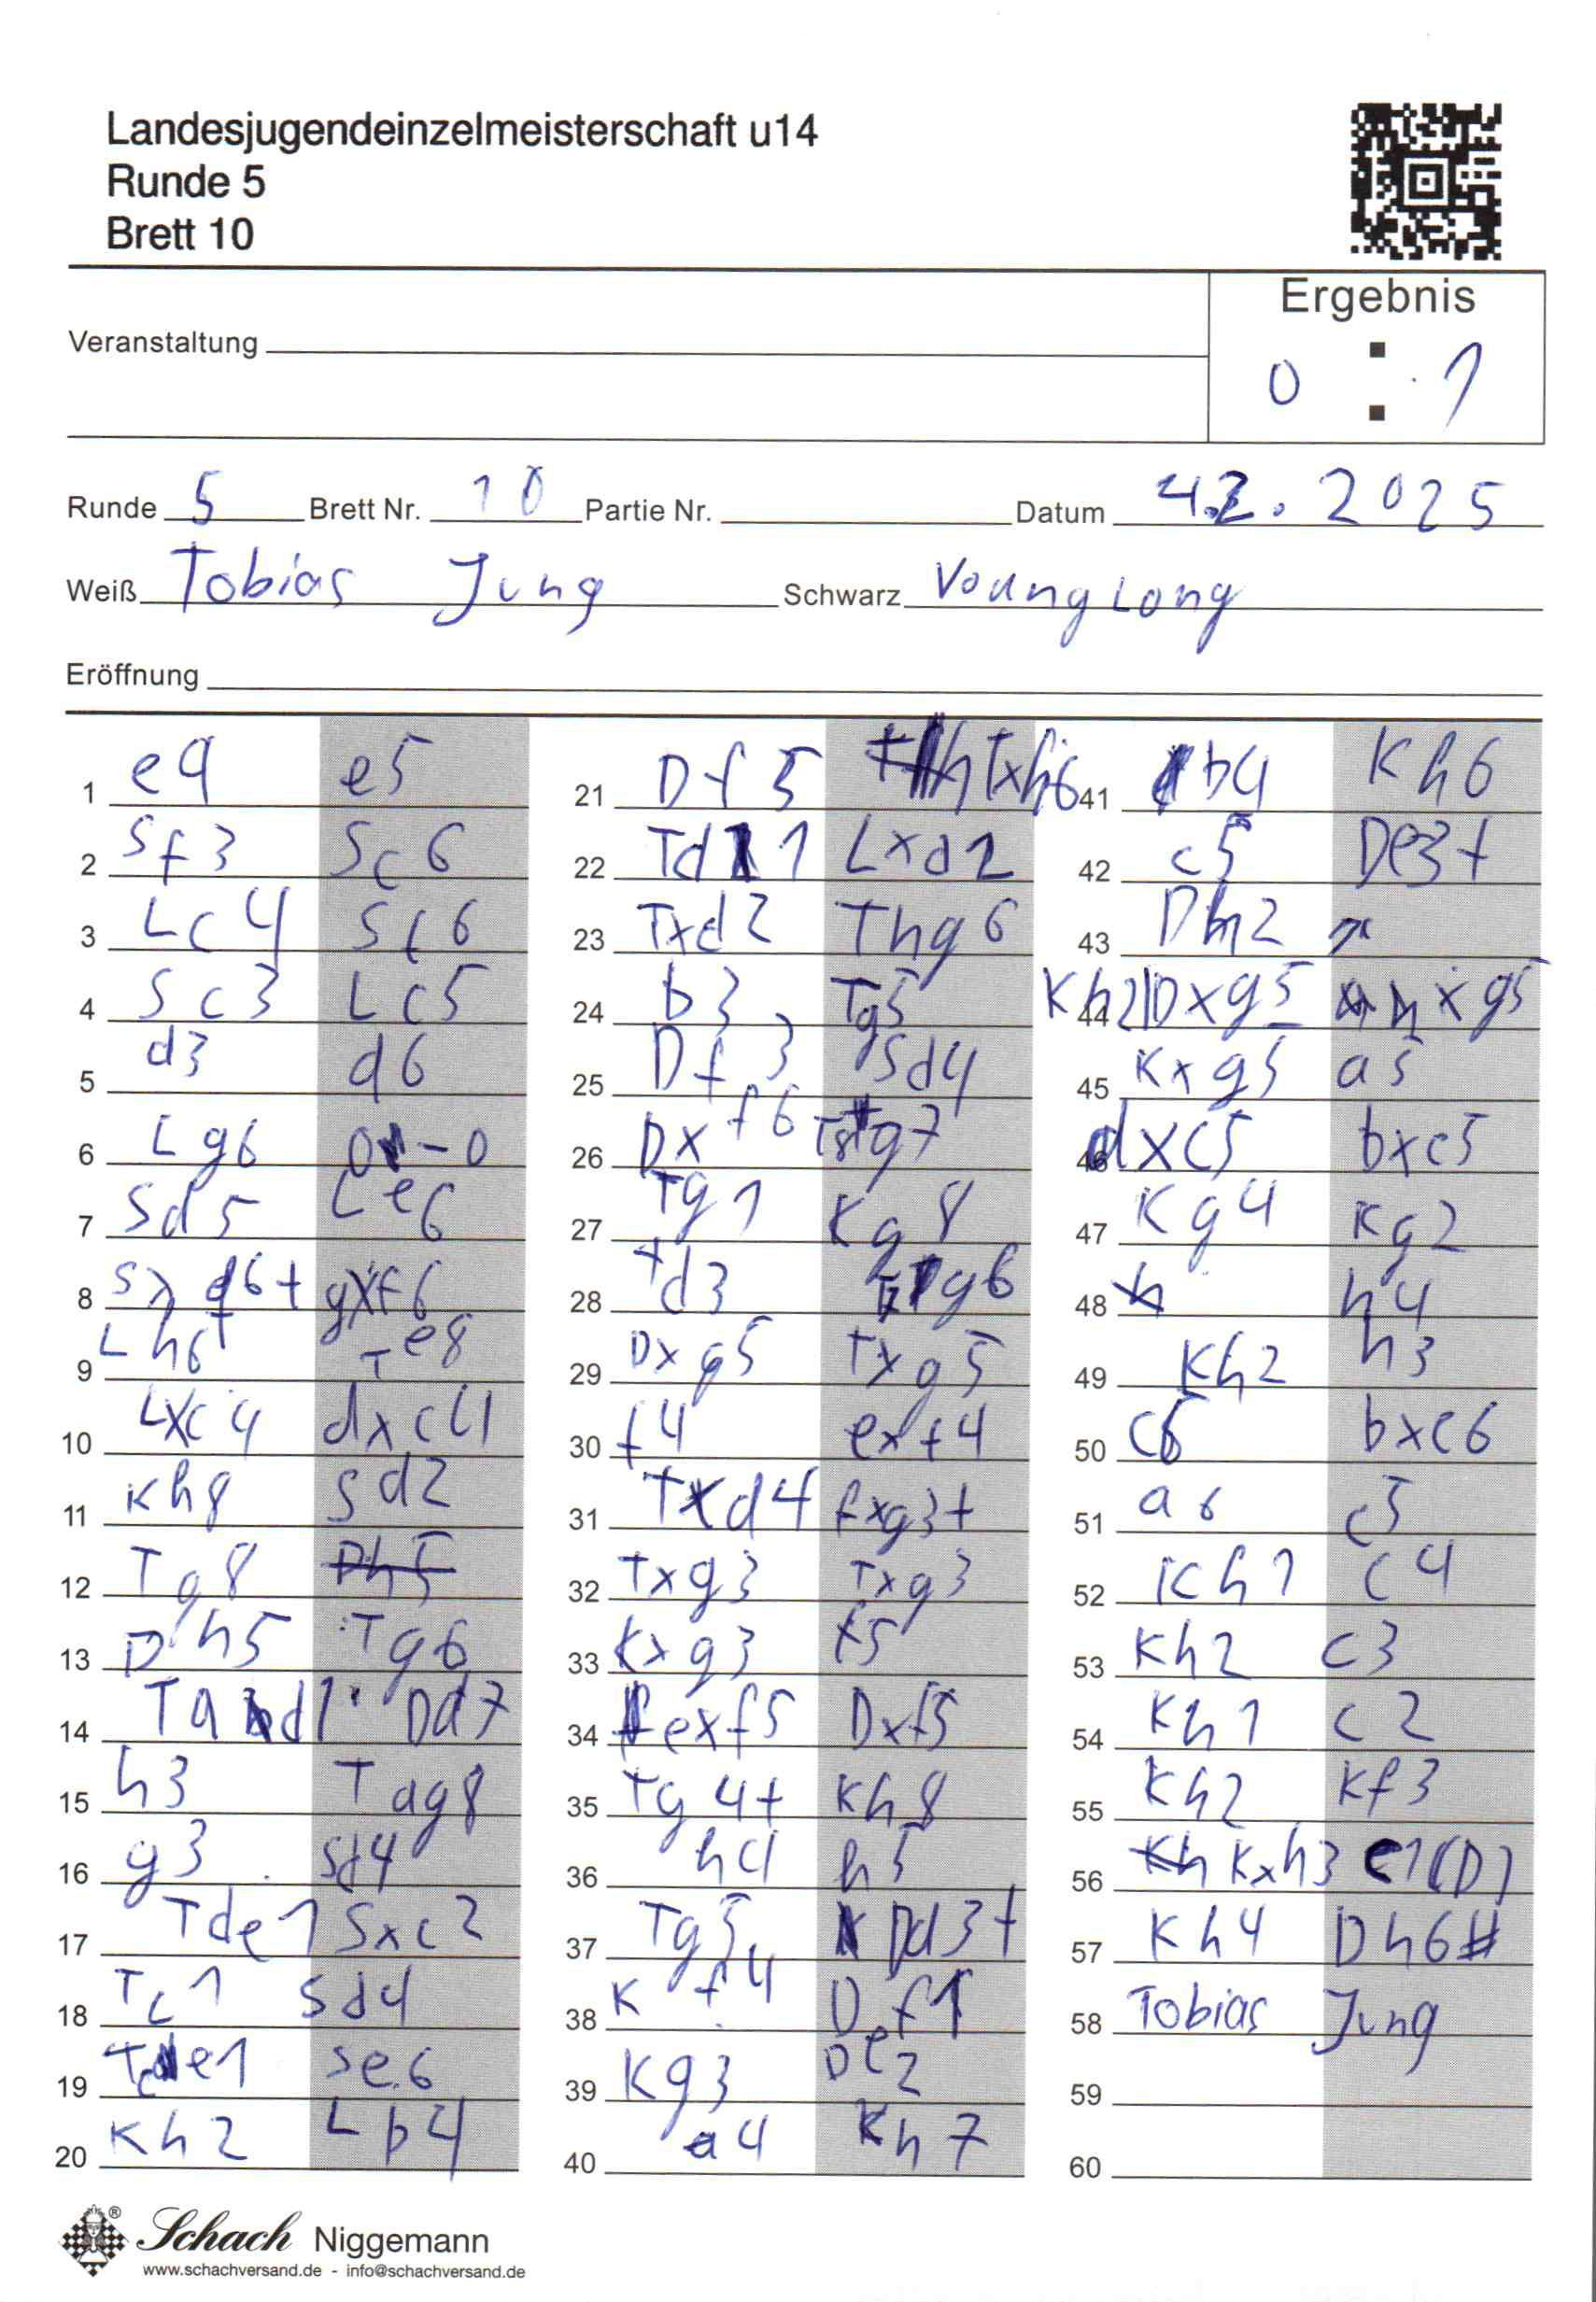 Landesjugendeinzelmeisterschaft u14
Runde 5
Brett 10
Ergebnis
0 : 1
Veranstaltung
Runde 5 Brett Nr. 10 Partie Nr. Datum 4.2. 2025
Weiß Tobias Jung Schwarz Voung Long
Eröffnung
1 e4 e5
2 Sf3 Sc6
3 Lc4 Sf6
4 Sc3 Lc5
5 d3 d6
6 Lg6 0-0
7 Sd5 Le6
8 Sxd6+ gxf6
9 Lh6+ Te8
10 Lxc4 dxc4
11 Kh8 Sd2
12 Tg8 Dh5
13 Dh5 Tg6
14 Tad1 Dd7
15 h3 Tag8
16 g3 Sd4
17 Tde1 Sxc2
18 Tc1 Sd4
19 Tce1 Se6
20 Kh2 Lb4
21 Df5 Txh6
22 Td1 Lxd2
23 Txd2 Thg6
24 b3 Tg5
25 Df3 Sd4
26 Dxf6 Tg7
27 Tg1 Kg8
28 Td3 Tg6
29 Dxg5 Txg5
30 f4 exf4
31 Txd4 fxg3+
32 Txg3 Txg3
33 Kxg3 f5
34 exf5 Dxf5
35 Tg4+ Kh8
36 h4 h5
37 Tg5 Dd3+
38 Kf4 Df1
39 Kg3 De2
40 a4 Kh7
41 b4 Kh6
42 c5 De3+
43 Dh2
44 Kh2|Dxg5 hxg5
45 Kxg5 a5
46 dxc5 bxc5
47 Kg4 Kg2
48 h h4
49 Kh2 h3
50 c6 bxc6
51 a6 c5
52 Kh1 c4
53 Kh2 c3
54 Kh1 c2
55 Kh2 Kf3
56 Kh Kxh3 c1(D)
57 Kh4 Dh6#
58 Tobias Jung
59
60
Schach Niggemann
www.schachversand.de - info@schachversand.de